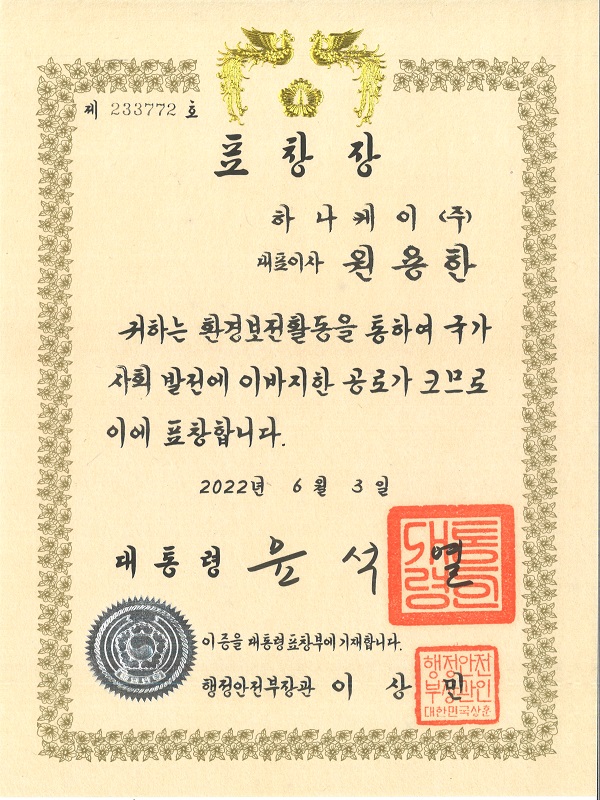 제 233772 호
표창장
하나케이(주)
대표이사 원용한
귀하는 환경보전활동을 통하여 국가
사회 발전에 이바지한 공로가 크므로
이에 표창합니다.
2022년 6월 3일
대통령 윤석열
대통
령의인
이 증을 대통령표창부에 기재합니다.
행정안전부장관 이상민
행정안전
부장관인
대한민국상훈